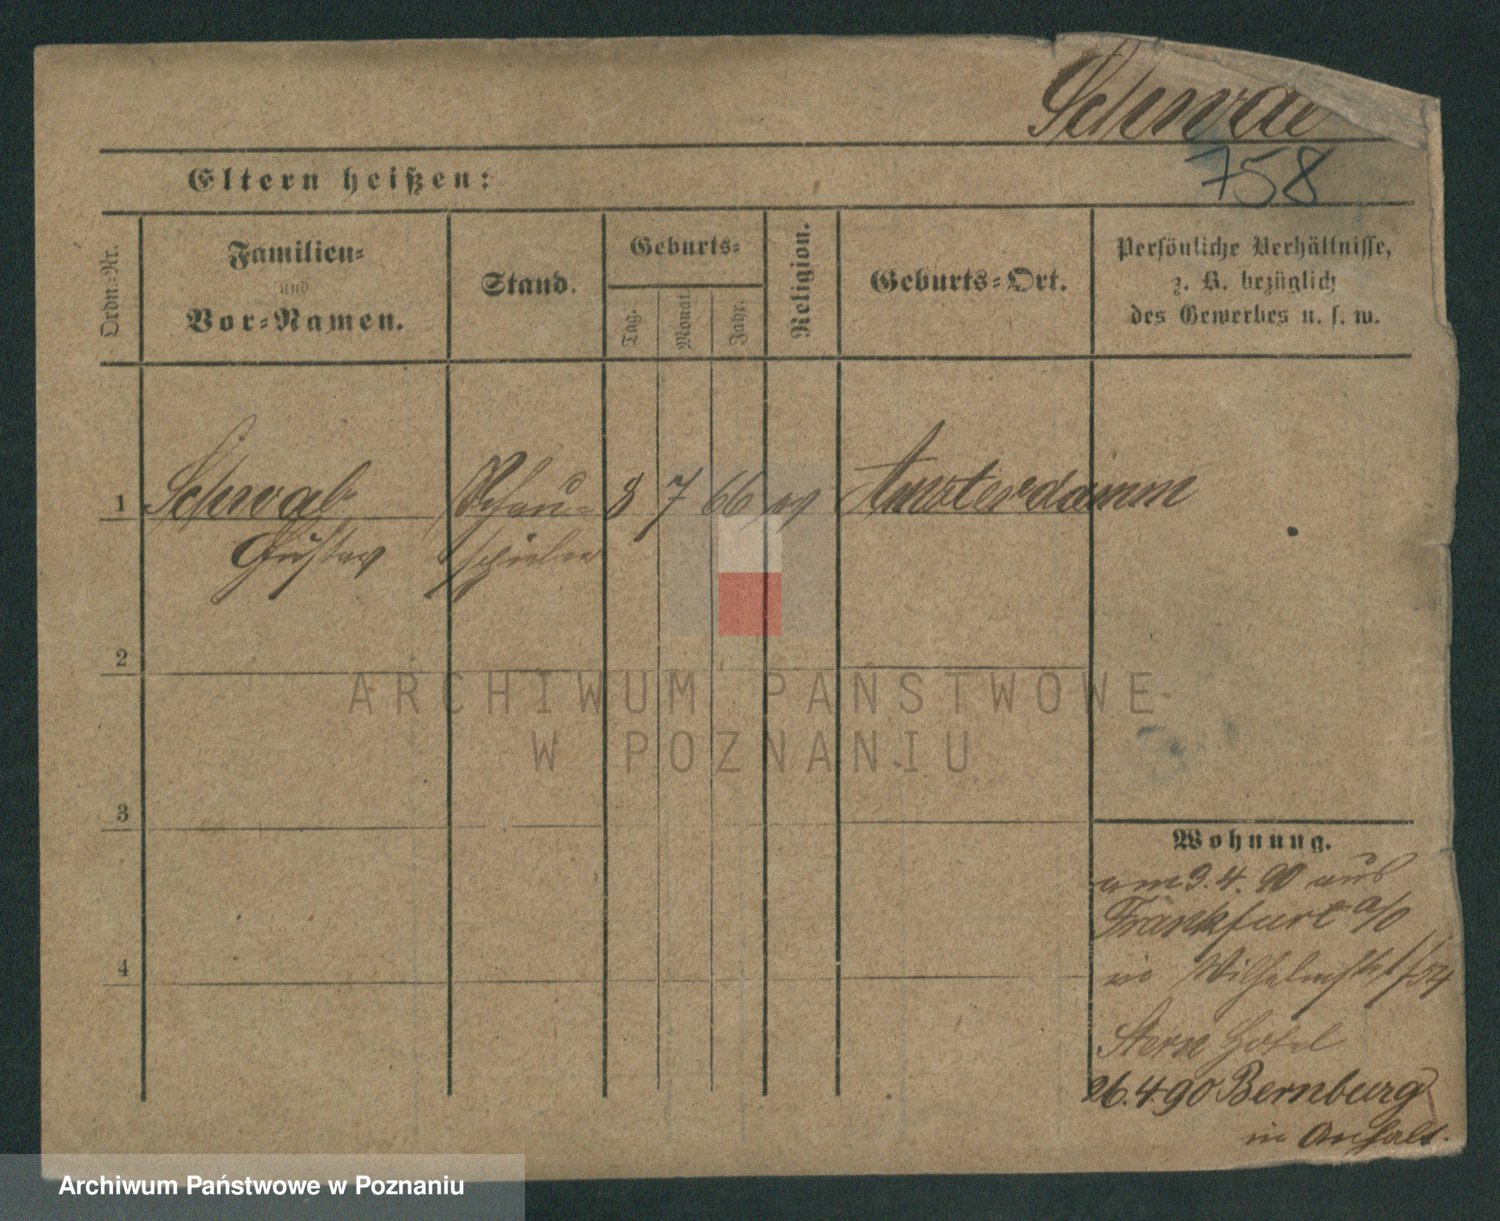 Schwab
758
Eltern heißen:
Ordn.-Nr.
Familien-
und
Vor-Namen.
Stand.
Geburts-
Tag.
Monat
Jahr.
Religion.
Geburts-Ort.
Persönliche Verhältnisse,
z. B. bezüglich
des Gewerbes u. s. w.
1 Schwab Schau- 8 7 66 Amsterdamm
Gustav spieler
2
3
4
Wohnung.
am 3.4.90 aus
Frankfurt a/O
Wilhelmstr
Stern Hotel
26.4.90 Bernburg
in Anhalt.
ARCHIWUM PAŃSTWOWE
W POZNANIU
Archiwum Państwowe w Poznaniu